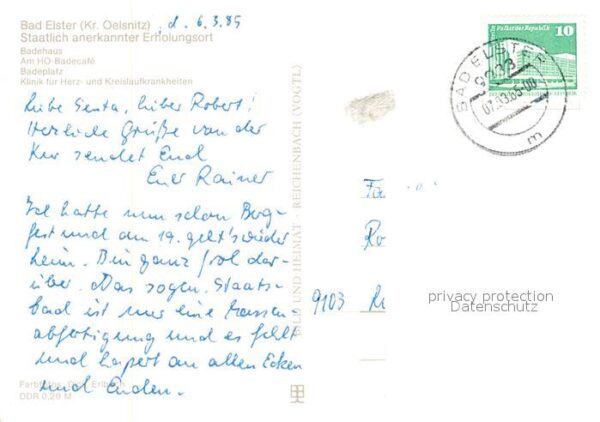 Bad Elster (Kr. Oelsnitz) , d. 6.3.85
Staatlich anerkannter Erholungsort
Badehaus
Am HO-Badecafé
Badeplatz
Klinik für Herz- und Kreislaufkrankheiten
Liebe Senta, lieber Robert!
Herzliche Grüße von der
Kur sendet Euch
Euer Rainer
Ich hatte nun schon Berg-
fest und am 19. geht's wieder
heim. Bin ganz froh dar-
über. Das sogen. Staats-
bad ist nur eine Massen-
abfertigung und es fehlt
und hapert an allen Ecken
und Enden.
Farbfotos: Erlbach
DDR 0,20 M
BILD UND HEIMAT · REICHENBACH (VOGTL)
Palast der Republik
10
BAD ELSTER
9933
07.03.85-00
m
Fa
Ro
9103
privacy protection
Datenschutz